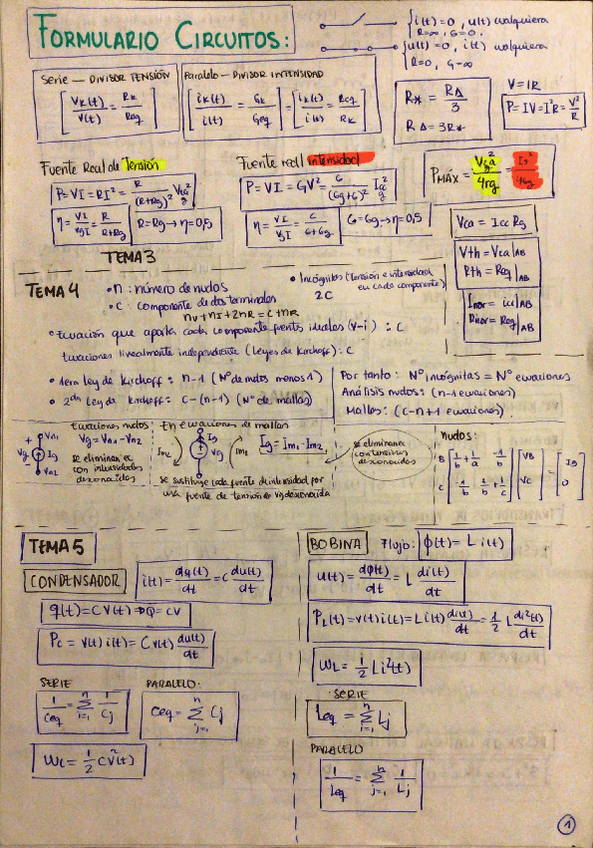 FORMULARIO CIRCUITOS:
{ i(t)=0, u(t) cualquiera
R=∞, G=0.
{ u(t)=0, i(t) cualquiera
R=0, G=∞
Serie — DIVISOR TENSIÓN
[ Vk(t)/V(t) = Rk/Req ]
Paralelo - DIVISOR INTENSIDAD
[ ik(t)/i(t) = Gk/Geq ] = [ ik(t)/i(t) = Req/Rk ]
R* = RΔ/3
RΔ = 3R*
V = IR
P = IV = I²R = V²/R
Fuente Real de Tensión
P = VI = RI² = R/(R+Rg)² Vca²
η = VI/VgI = R/(R+Rg)
R = Rg → η = 0,5
Fuente real intensidad
P = VI = GV² = G/(G+Gg)² Icc²
η = VI/VgI = G/(G+Gg)
G = Gg → η = 0,5
PMÁX = Vg²/4rg = Ig²/4Gg
Vca = Icc Rg
Vth = Vca|AB
Rth = Req|AB
Inor = icc|AB
Rnor = Req|AB
TEMA 3
TEMA 4
• n: número de nudos
• c: componente de dos terminales
nv + nI + 2nR = C + nR
• Incógnitas (tensión e intensidad en cada componente)
2C
• Ecuación que aporta cada componente fuentes ideales (v-i): C
Ecuaciones linealmente independiente (Leyes de Kirchoff): C
• 1era ley de Kirchoff: n-1 (Nº de nudos menos 1)
• 2da Ley de Kirchoff: C-(n-1) (Nº de mallas)
Por tanto: Nº incógnitas = Nº ecuaciones
Análisis nudos: (n-1 ecuaciones)
Mallas: (c-n+1 ecuaciones)
Ecuaciones nudos
Vg = Vn1 - Vn2
Vn1
Vg Ig
Vn2
se eliminan ec con intensidades desconocidas
En ecuaciones de mallas
Im2 Ig Vg Im1
Ig = Im1 - Im2
se sustituye cada fuente de intensidad por
una fuente de tensión de Vg desconocida
se eliminan ec con tensiones desconocidas
nudos:
B [ 1/b + 1/a -1/b ] [ VB ] = [ Ig ]
C [ -1/b 1/b + 1/c ] [ VC ] [ 0 ]
TEMA 5
CONDENSADOR
i(t) = dq(t)/dt = C du(t)/dt
q(t) = C V(t) → Q = CV
Pc = V(t) i(t) = C v(t) du(t)/dt
SERIE
1/Ceq = Σ(j=1, n) 1/Cj
PARALELO:
Ceq = Σ(j=1, n) Cj
Wc = 1/2 C V²(t)
BOBINA Flujo: ϕ(t) = L i(t)
u(t) = dϕ(t)/dt = L di(t)/dt
PL(t) = v(t) i(t) = L i(t) di(t)/dt = 1/2 L di²(t)/dt
WL = 1/2 L i²(t)
SERIE
Leq = Σ(j=1, n) Lj
PARALELO
1/Leq = Σ(j=1, n) 1/Lj
1